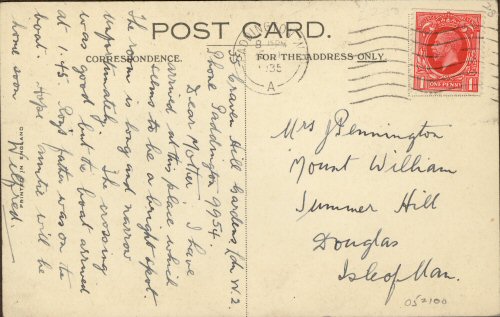 POST CARD.
CORRESPONDENCE.
FOR THE ADDRESS ONLY.
PADDINGTON
1935
A
ONE PENNY
35 Craven Hill Gardens, Ldn W.2.
Phone Paddington 9954.
Dear Mother. I have
arrived at this place which
seems to be a bright spot.
The room is long and narrow
unfortunately. The crossing
was good but the boat arrived
at 1.45. Roy's father was on the
boat. Hope Auntie will be
home soon
Wilfred.
PRINTED IN ENGLAND
Mrs J Pennington
Mount William
Summer Hill
Douglas
Isle of Man.
052100